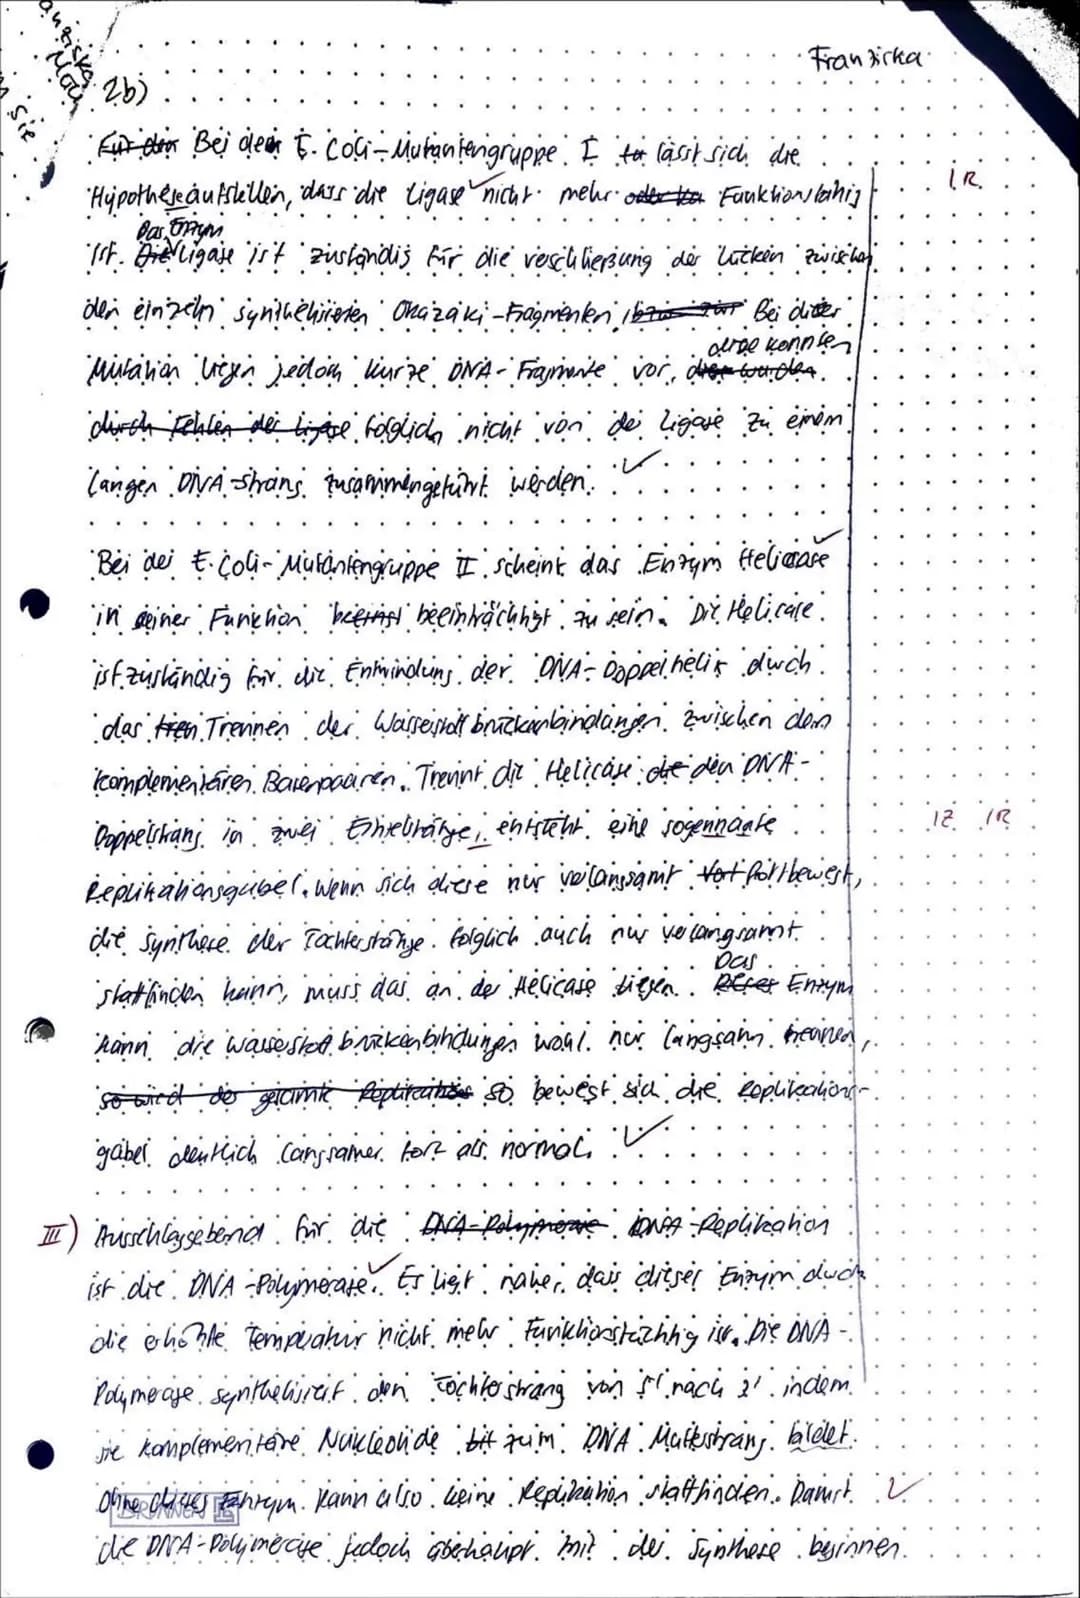 Franziska
2b)
Für den Bei den E. Coli-Mutantengruppe I lässt sich die 1R
Hypothese aufstellen, dass die Ligase nicht mehr oder Funktionsfähig
Das Enzym
ist. Die Ligase ist zuständig für die verschließung der Lücken zwischen
den einzeln synthetisierten Okazaki-Fragmenten, bzw. zur Bei dieser
diese konnten
Mutation liegen jedoch kurze DNA-Fragmente vor, dies wurden
durch Fehlen der Ligase folglich nicht von der Ligase zu einem
langen DNA-Strang zusammengeführt werden.
Bei der E. Coli-Mutantengruppe II scheint das Enzym Helicase
in seiner Funktion beeinträchtigt zu sein. Die Helicase
ist zuständig für die Entwindung der DNA-Doppelhelix durch
das tren Trennen der Wasserstoffbrückenbindungen zwischen den
komplementären Basenpaaren. Trennt die Helicase die den DNA-
Doppelstrang in zwei Einzelstränge, entsteht eine sogennante 1Z 1R
Replikationsgabel. Wenn sich diese nur verlangsamt fortbewegt,
die Synthese der Tochterstränge folglich auch nur verlangsamt
Das
stattfinden kann, muss das an der Helicase liegen. Enzym
kann die Wasserstoffbrückenbindungen wohl nur langsam trennen,
so wird die gesamte Replikation so bewegt sich die Replikations-
gabel deutlich langsamer fort als normal.
III) Ausschlaggebend für die DNA-Polymerase DNA-Replikation
ist die DNA-Polymerase. Es liegt nahe, dass dieser Enzym durch
die erhöhte Temperatur nicht mehr Funktionstüchtig ist. Die DNA-
Polymerase synthetisiert den Tochterstrang von 5' nach 3' indem
sie komplementäre Nukleotide bit zum DNA Mutterstrang bildet.
Ohne dieses Enzym kann also keine Replikation stattfinden. Damit
BRUNNEN
die DNA-Polymerase jedoch überhaupt mit der Synthese beginnen